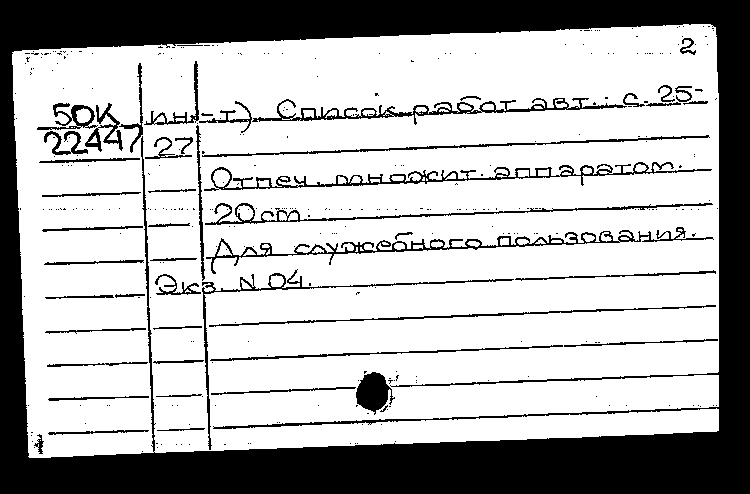 2
50К ин-т). Список работ авт.: с. 25-
22447 27
Отпеч. множит. аппаратом.
20 ст.
Для служебного пользования.
Экз. N 04.